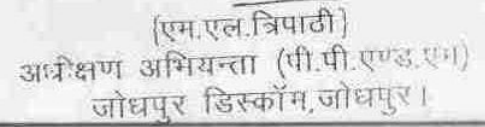 (एम.एल.त्रिपाठी)
अधीक्षण अभियन्ता (पी.पी.एण्ड.एम)
जोधपुर डिस्कॉम,जोधपुर।